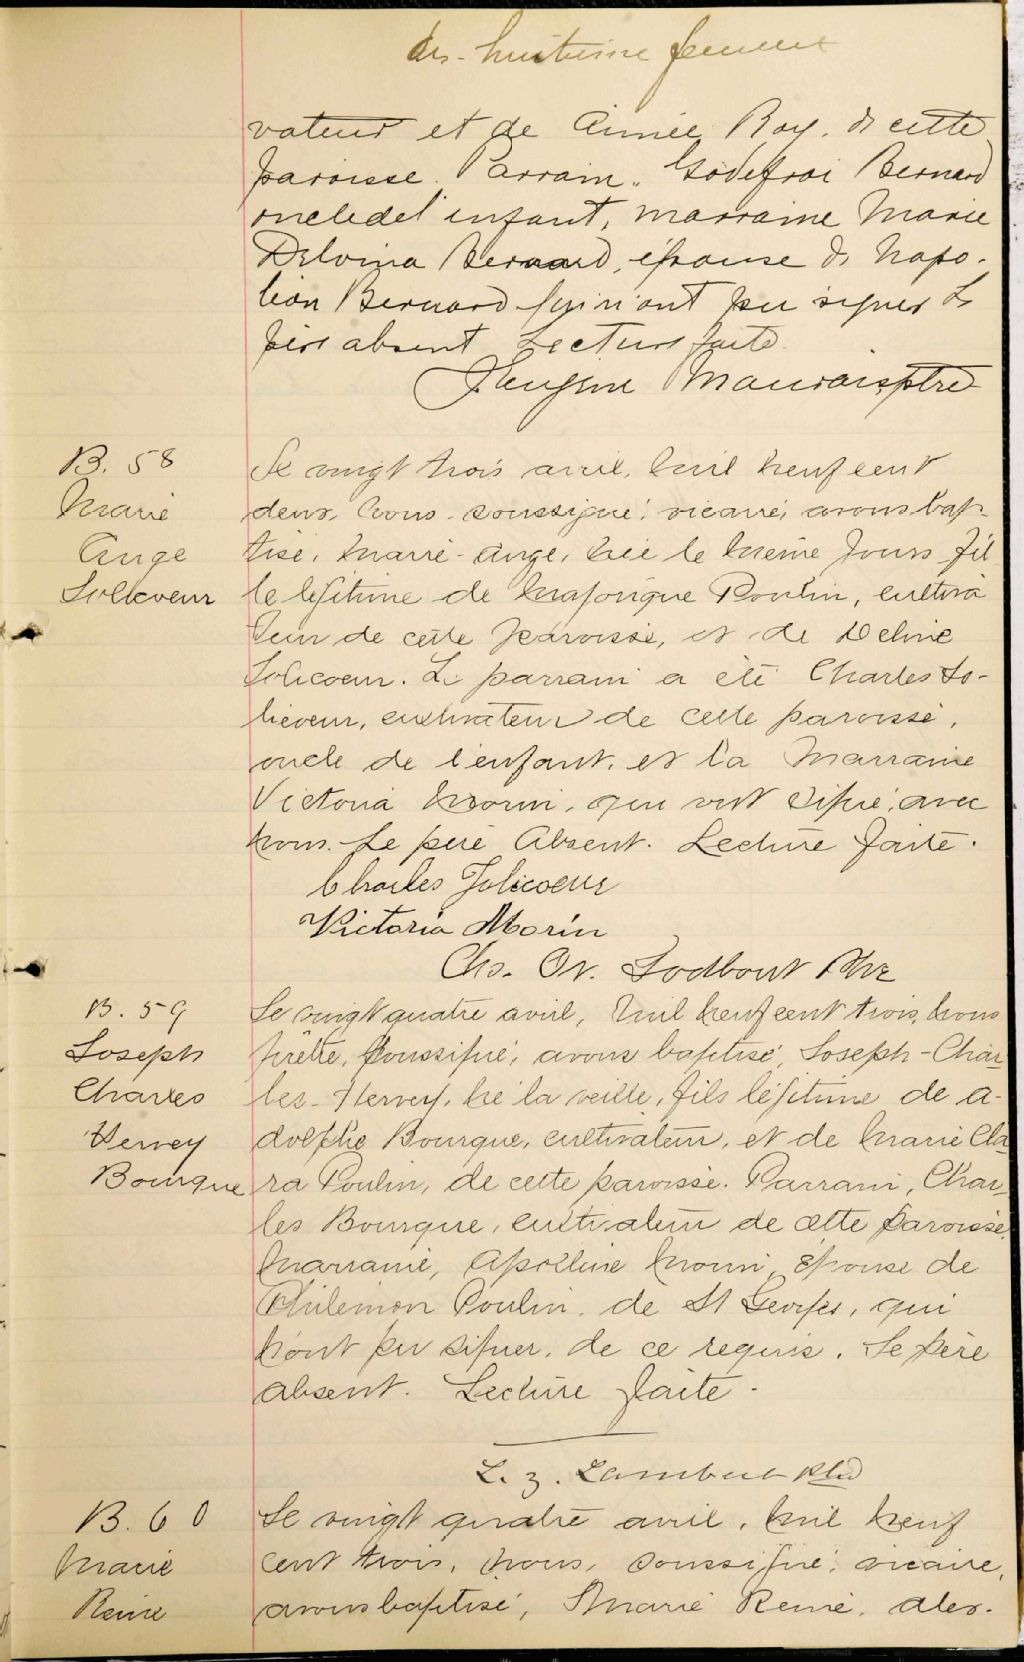 dix-huitième feuillet
vateur et de Aimée Roy, de cette
paroisse. Parrain. Godefroi Bernard
oncle de l'enfant, marraine Marie
Delvina Bernard, épouse de Napo-
léon Bernard qui n'ont pu signer Le
père absent Lecture faite.
Mauvais ptre
B. 58
Marie
Ange
Solicoeur
Le vingt trois avril, mil neuf cent
deux, nous soussigné, vicaire, avons bap-
tisé, Marie-Ange, née le même jour, fil
le légitime de Majorique Poulin, cultiva
teur de cette paroisse, et de Deline
Jolicoeur. Le parrain a été Charles Jo-
licoeur, cultivateur de cette paroisse,
oncle de l'enfant, et la Marraine
Victoria Morin, qui ont signé avec
nous. Le père Absent. Lecture faite.
Charles Jolicoeur
Victoria Morin
Chs. Or. Godbout Ptre
B. 59
Joseph
Charles
Hervey
Bourque
Le vingt quatre avril, mil neuf cent trois, nous
prêtre, soussigné, avons baptisé, Joseph-Char-
les-Hervey, né la veille, fils légitime de A-
dolphe Bourque, cultivateur, et de Marie Cla-
ra Poulin, de cette paroisse. Parrain, Char-
les Bourque, cultivateur de cette paroisse.
Marraine, Apolline Morin, épouse de
Philémon Poulin, de St Georges, qui
n'ont pu signer, de ce requis. Le père
absent. Lecture faite.
L. Z. Lambert Ptre
B. 60
Marie
Reine
Le vingt quatre avril, mil neuf
cent trois, nous, soussigné, vicaire,
avons baptisé, Marie Reine, Alex-